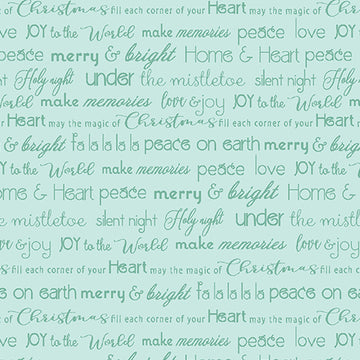 of Christmas fill each corner of your Heart may the magic of Ch
ve JOY to the World make memories peace love
peace merry & bright Home & Heart peace
nt Holy night under the mistletoe silent night Holy
World make memories love & joy JOY to the World
your Heart may the magic of Christmas fill each corner of your
& bright fa la la la la peace on earth merry &
Y to the World make memories peace love
ome & Heart peace merry & bright Home &
the mistletoe silent night Holy night under the mis
ve & joy JOY to the World make memories love & joy
s fill each corner of your Heart may the magic of Christmas fill
ce on earth merry & bright fa la la la la peace on
of Christmas fill each corner of your Heart may the magic of Ch
ve JOY to the World make memories peace love